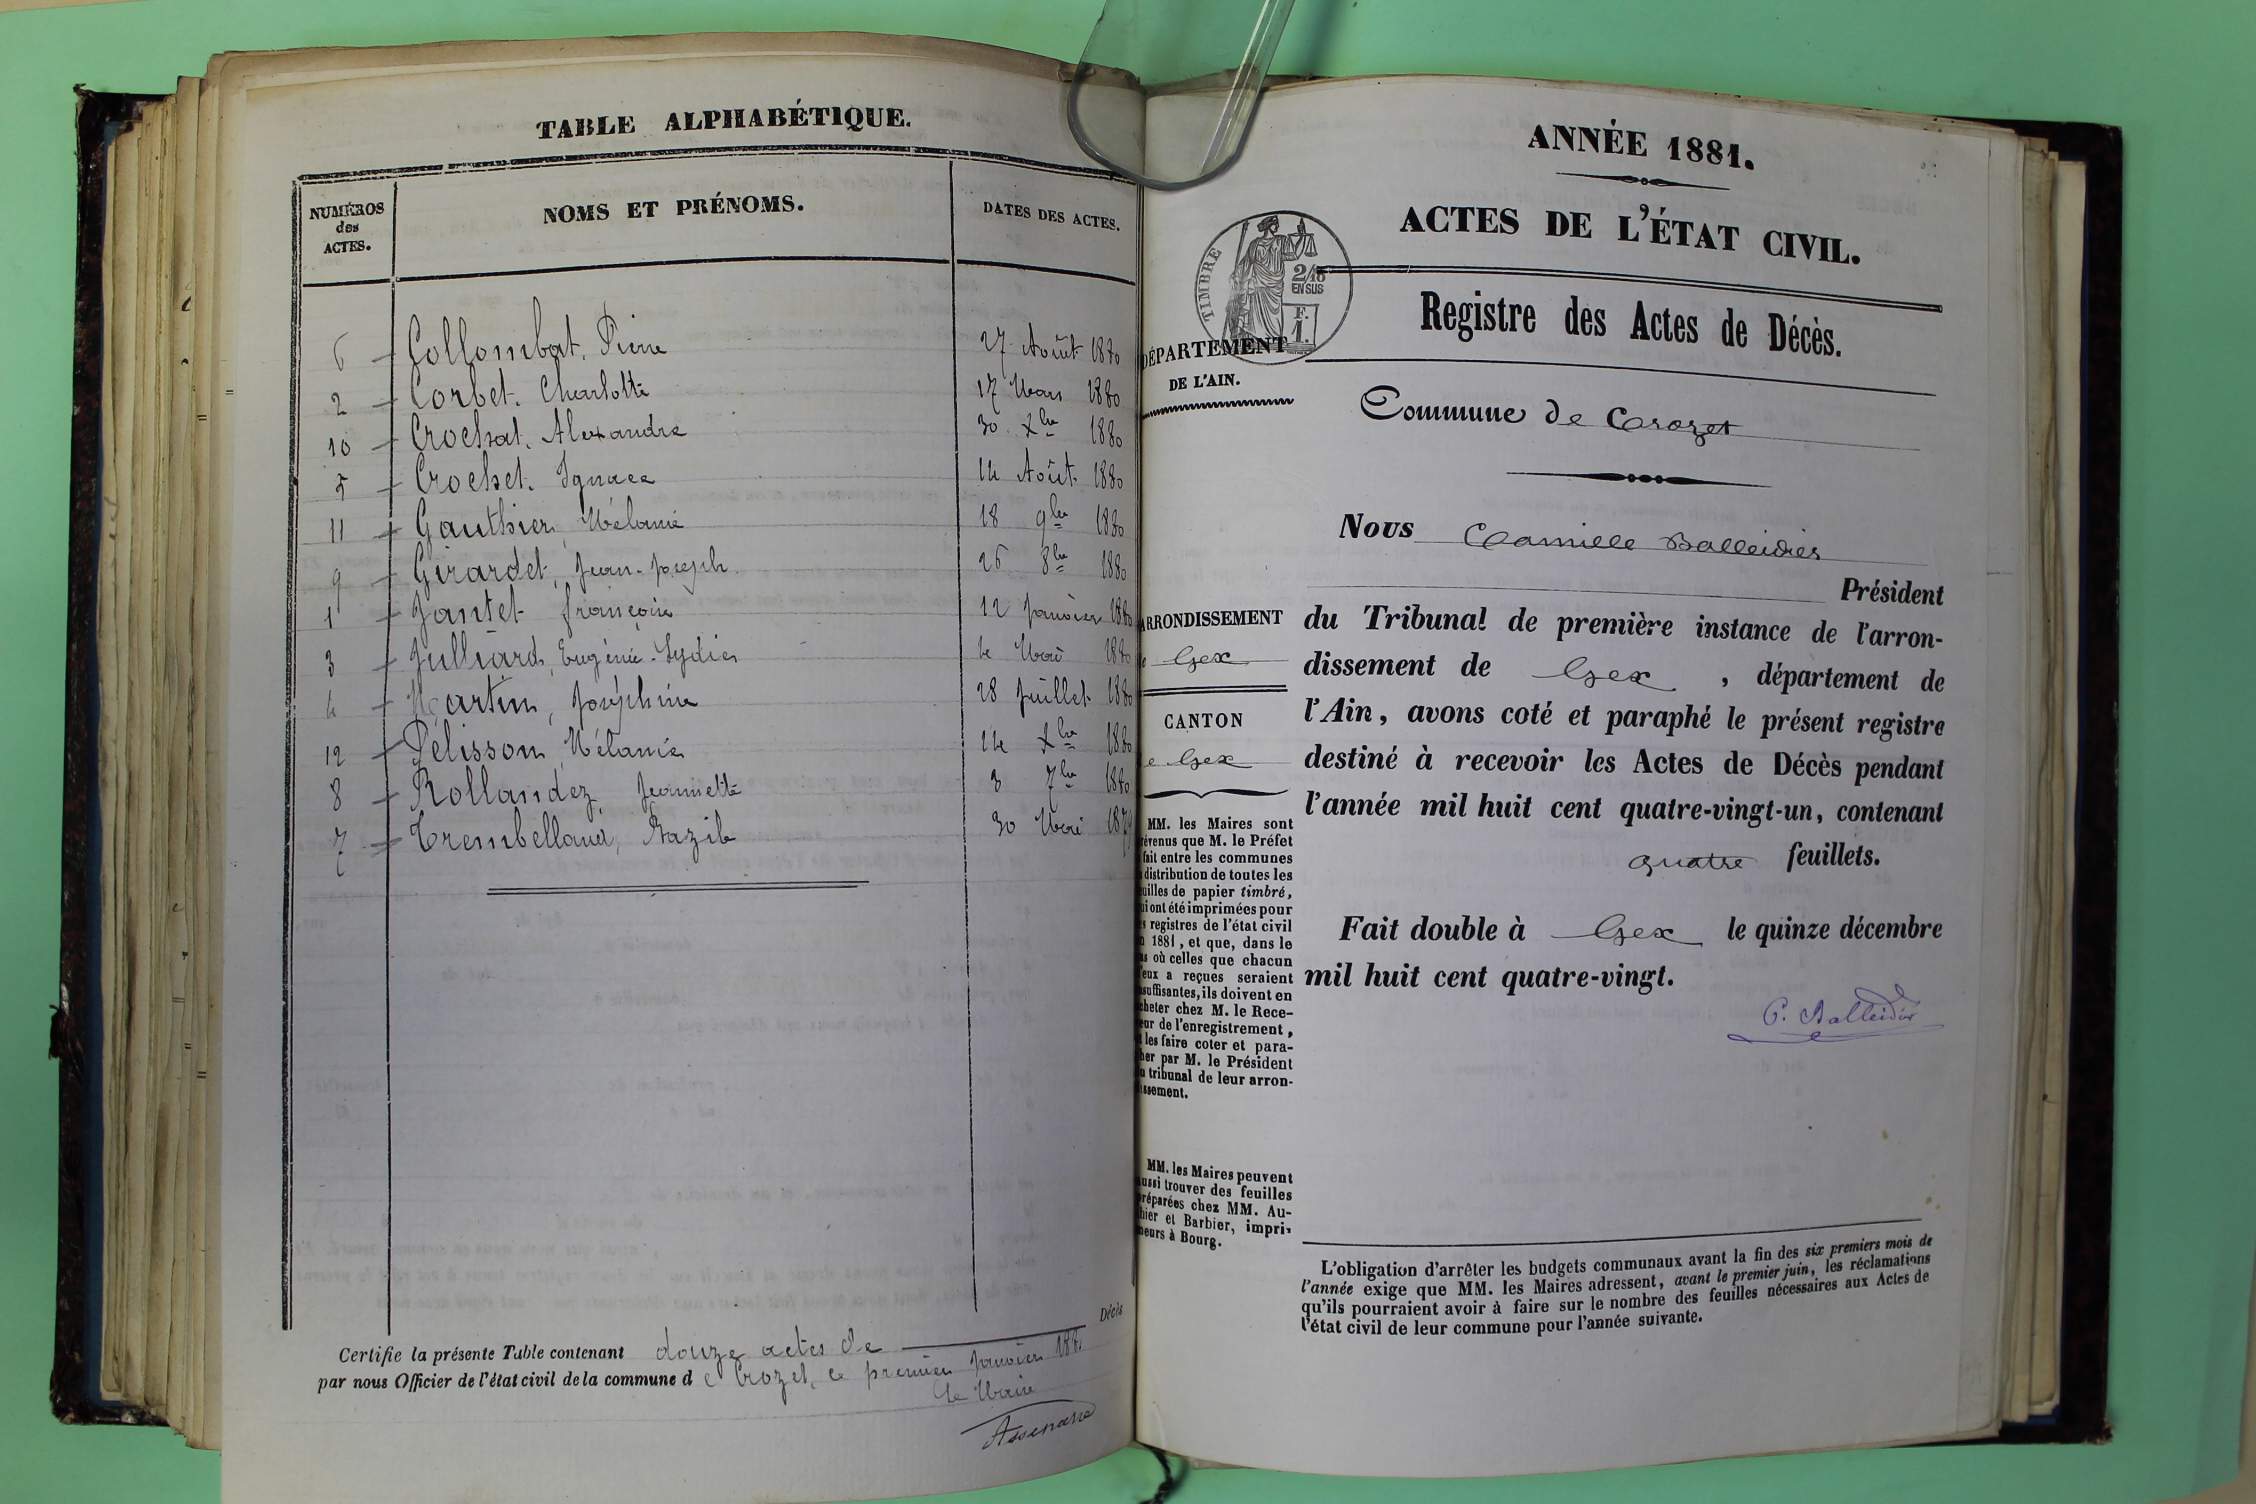 TABLE ALPHABÉTIQUE.
NUMÉROS des ACTES. NOMS ET PRÉNOMS. DATES DES ACTES.
6 Collombat, Pierre 27 Août 1880
2 Corbet, Charlotte 17 Mars 1880
10 Crochat, Alexandre 30 Xbre 1880
5 Crochet, Ignace 14 Août 1880
11 Gauthier, Mélanie 18 9bre 1880
9 Girardet, Jean-Joseph 26 8bre 1880
1 Jantet Françoise 12 Janvier 1880
3 Julliard, Eugénie-Lydie 4 Mai 1880
4 Martin, Joséphine 28 Juillet 1880
12 Pelisson, Mélanie 14 Xbre 1880
8 Rollandez, Jeannette 3 7bre 1880
7 Trembelland, Bazile 30 Mai 1879
Décès
Certifie la présente Table contenant douze actes de
par nous Officier de l'état civil de la commune de Crozet, ce premier Janvier 1881
Le Maire
ANNÉE 1881.
ACTES DE L'ÉTAT CIVIL.
TIMBRE
2/10
EN SUS
F.
1.
Registre des Actes de Décès.
DÉPARTEMENT
DE L'AIN.
Commune de Crozet
Nous Camille Balleidier
Président
ARRONDISSEMENT
de Gex
CANTON
de Gex
du Tribunal de première instance de l'arron-
dissement de Gex, département de
l'Ain, avons coté et paraphé le présent registre
destiné à recevoir les Actes de Décès pendant
l'année mil huit cent quatre-vingt-un, contenant
quatre feuillets.
Fait double à Gex le quinze décembre
mil huit cent quatre-vingt.
C. Balleidier
MM. les Maires sont
prévenus que M. le Préfet
fait entre les communes
distribution de toutes les
feuilles de papier timbré,
qui ont été imprimées pour
les registres de l'état civil
en 1881, et que, dans le
cas où celles que chacun
d'eux a reçues seraient
insuffisantes, ils doivent en
acheter chez M. le Rece-
veur de l'enregistrement,
et les faire coter et para-
pher par M. le Président
du tribunal de leur arron-
dissement.
MM. les Maires peuvent
aussi trouver des feuilles
préparées chez MM. Au-
thier et Barbier, impri-
meurs à Bourg.
L'obligation d'arrêter les budgets communaux avant la fin des six premiers mois de
l'année exige que MM. les Maires adressent, avant le premier juin, les réclamations
qu'ils pourraient avoir à faire sur le nombre des feuilles nécessaires aux Actes de
l'état civil de leur commune pour l'année suivante.